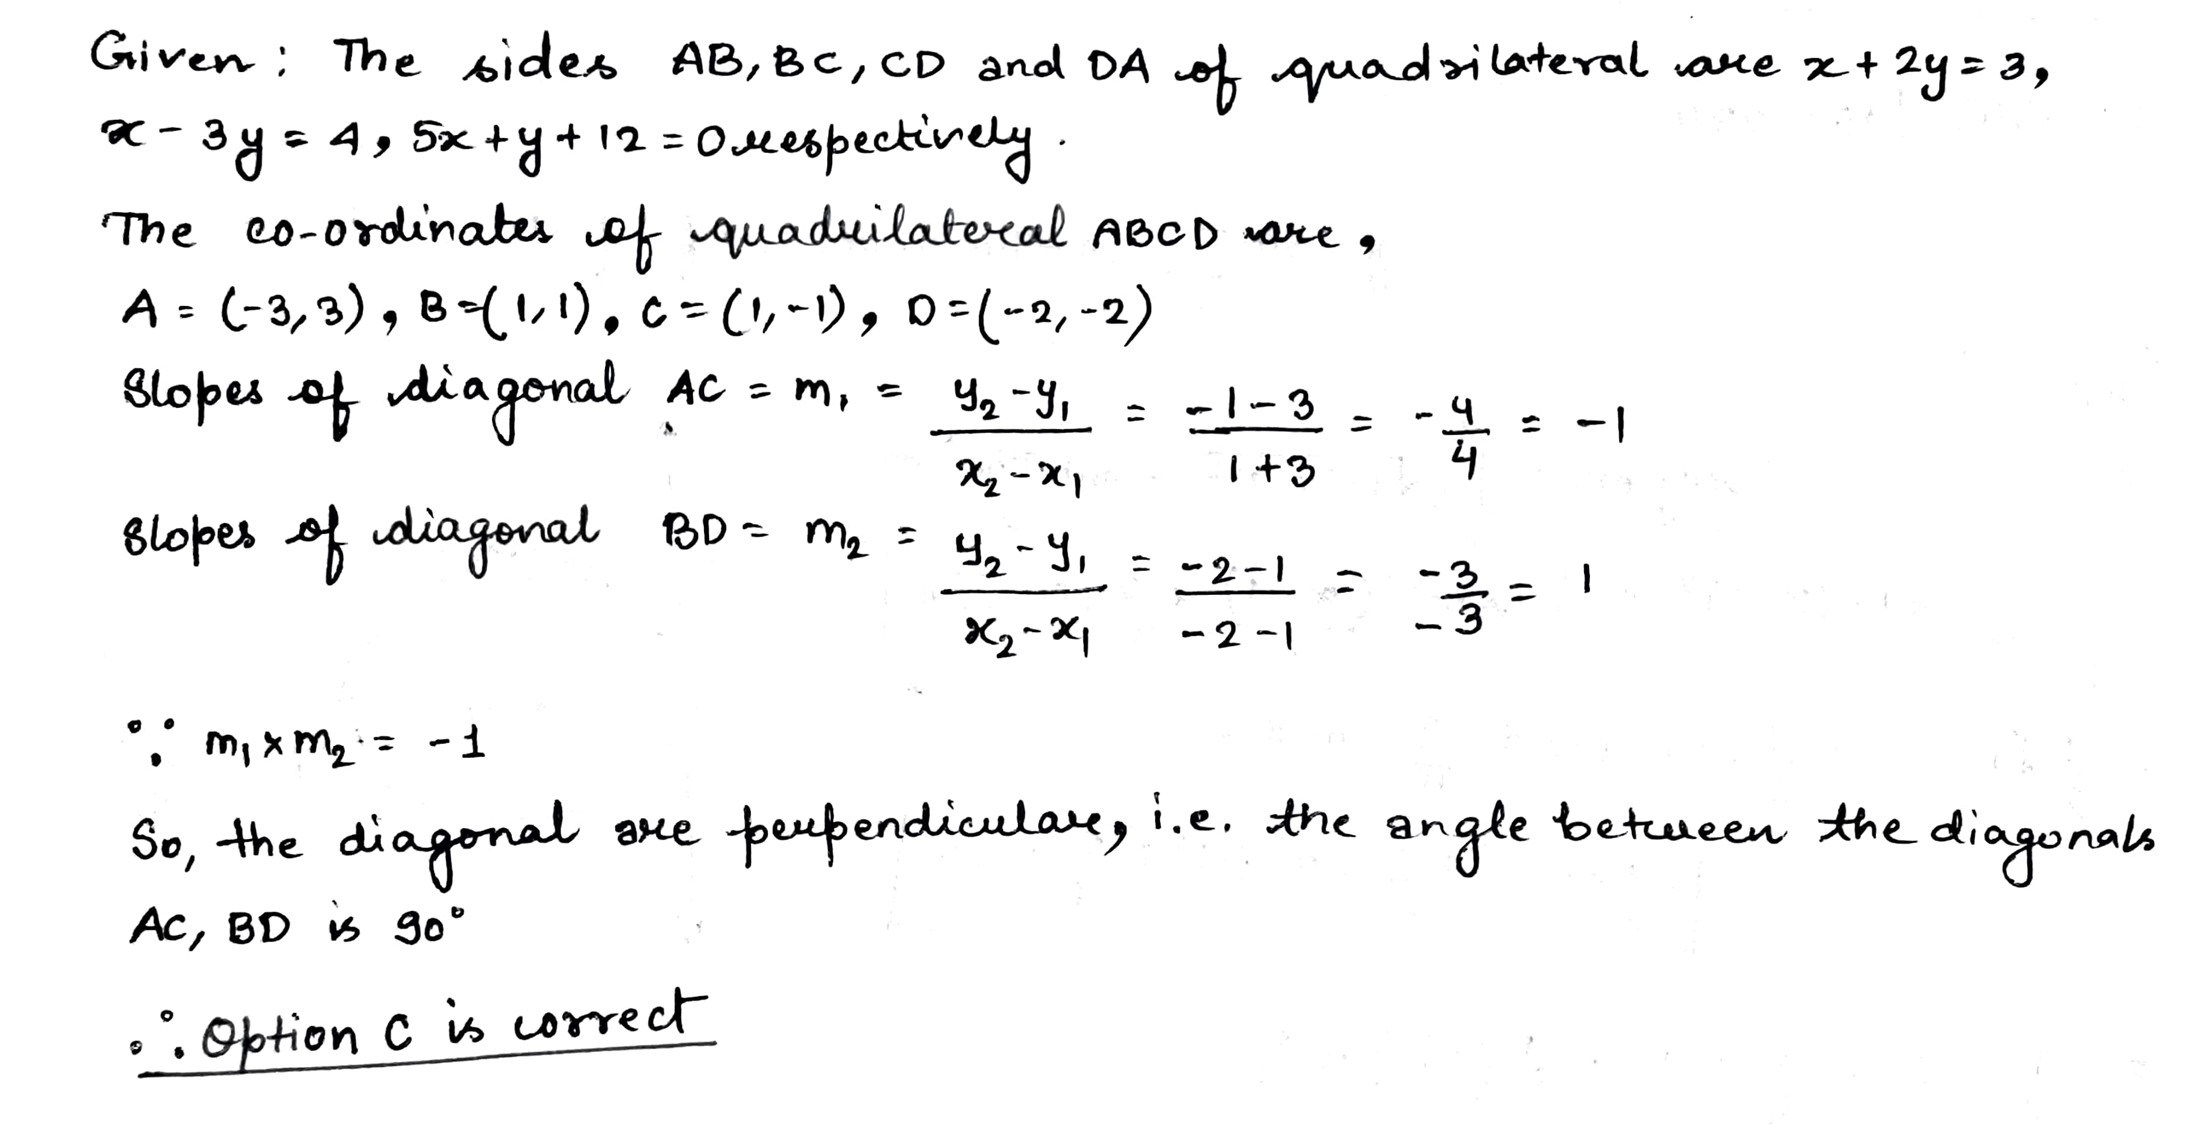 Given: The sides AB, BC, CD and DA of quadrilateral are x + 2y = 3,
x - 3y = 4, 5x + y + 12 = 0 respectively.
The co-ordinates of quadrilateral ABCD are,
A = (-3,3), B = (1,1), C = (1,-1), D = (-2,-2)
Slopes of diagonal AC = m₁ = (y₂ - y₁)/(x₂ - x₁) = (-1-3)/(1+3) = -4/4 = -1
Slopes of diagonal BD = m₂ = (y₂ - y₁)/(x₂ - x₁) = (-2-1)/(-2-1) = -3/-3 = 1
∵ m₁ × m₂ = -1
So, the diagonal are perpendicular, i.e. the angle between the diagonals
AC, BD is 90°
∴ Option C is correct